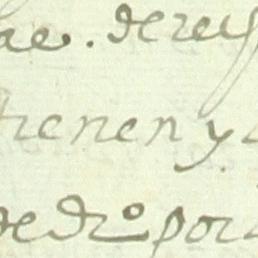 ae. de rey
tienen y
de dro por